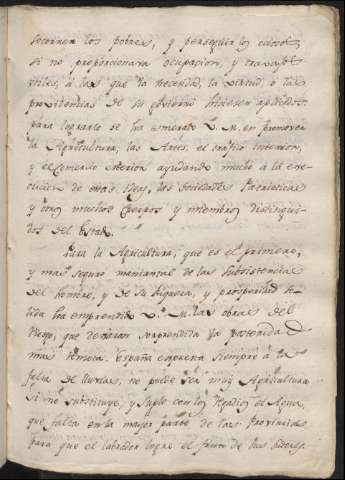 socorrer los pobres, y perseguir los ociosos,
si no proporcionara ocupacion, y travajos
utiles, à las que la necesidad, la virtud, ò las
providencias de su Govierno hiciesen aplicados.
para lograrlo se ha esmerado V. M. en promover
la Agricultura, las Artes, el trafico interior,
y el Comercio exterior ayudando mucho à la exe-
cucion de estas ideas, las Sociedades Patrioticas
y otros muchos Cuerpos y miembros distingui-
dos del Estado.
Para la Agricultura, que es el primero,
y mas seguro manantial de las subsistencias
del hombre, y de su riqueza, y prosperidad so-
lida ha emprendido V. M. las obras del
Riego, que dexaran sorprendida la posteridad
mas remota. España expuesta siempre à la
falta de lluvias, no puede ser muy Agricultora
si no substituye, y suple con los Regadios el Agua,
que falta en la mayor parte de las Provincias
para que el labrador logre el fruto de sus tareas.